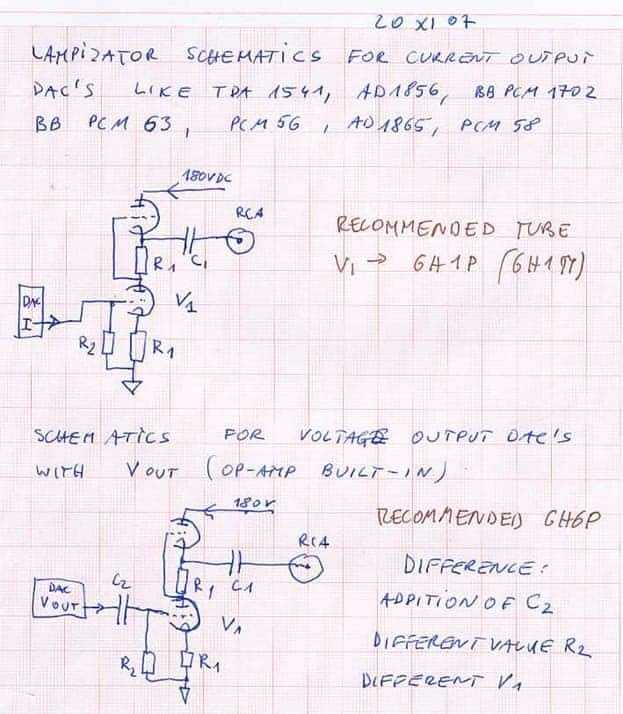 20 XI 07
LAMPIZATOR SCHEMATICS FOR CURRENT OUTPUT
DAC'S LIKE TDA 1541, AD1856, BB PCM 1702
BB PCM 63, PCM 56, AD1865, PCM 58
180VDC
RCA
C1
R1
V1
DAC
I
R2
R1
RECOMMENDED TUBE
V1 → 6H1P (6H1П)
SCHEMATICS FOR VOLTAGE OUTPUT DAC'S
WITH VOUT (OP-AMP BUILT-IN)
180V
RCA
C1
R1
C2
DAC
VOUT
V1
R2
R1
RECOMMENDED 6H6P
DIFFERENCE:
ADDITION OF C2
DIFFERENT VALUE R2
DIFFERENT V1